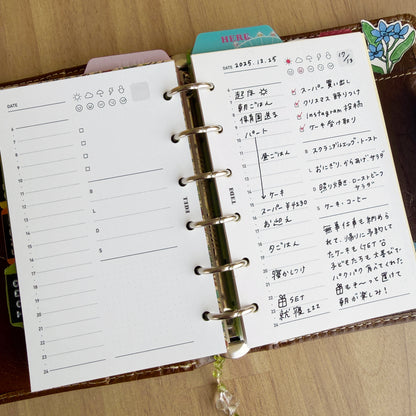 HERE
DATE
4
5
6
7
8
9
10
11
12
13
14
15
16
17
18
19
20
21
22
23
24
B
L
D
S
EDiT
DATE 2025.12.25
17/13
起床
朝ごはん
保育園送り
パート
昼ごはん
ケーキ
スーパー ¥4230
お迎え
夕ごはん
寝かしつけ
SET
就寝 zzz
スーパー 買い出し
クリスマス 飾りつけ
instagram 投稿
ケーキ受け取り
B スクランブルエッグ・トースト
L おにぎり、からあげ、サラダ
D 照り焼き・ローストビーフ
サラダ
S ケーキ・コーヒー
無事仕事も納めら
れて、帰りに予約して
たケーキもGET
子どもたちも大喜びで
パクパク食べてくれた
も そ〜っと置けて
朝が楽しみ！
EDiT